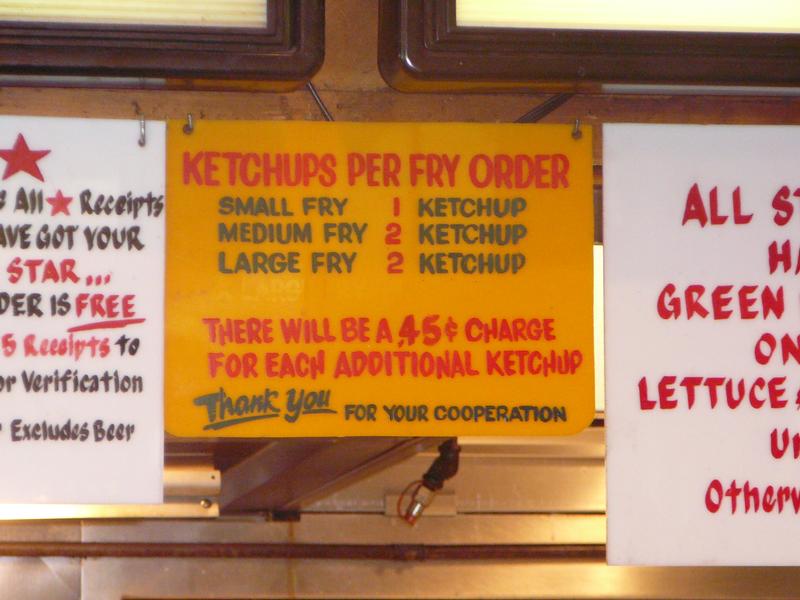 All ★ Receipts
GOT YOUR
STAR...
IS FREE
5 Receipts to
or Verification
Excludes Beer
KETCHUPS PER FRY ORDER
SMALL FRY 1 KETCHUP
MEDIUM FRY 2 KETCHUP
LARGE FRY 2 KETCHUP
THERE WILL BE A .45¢ CHARGE
FOR EACH ADDITIONAL KETCHUP
Thank You FOR YOUR COOPERATION
ALL
GREEN
ON
LETTUCE